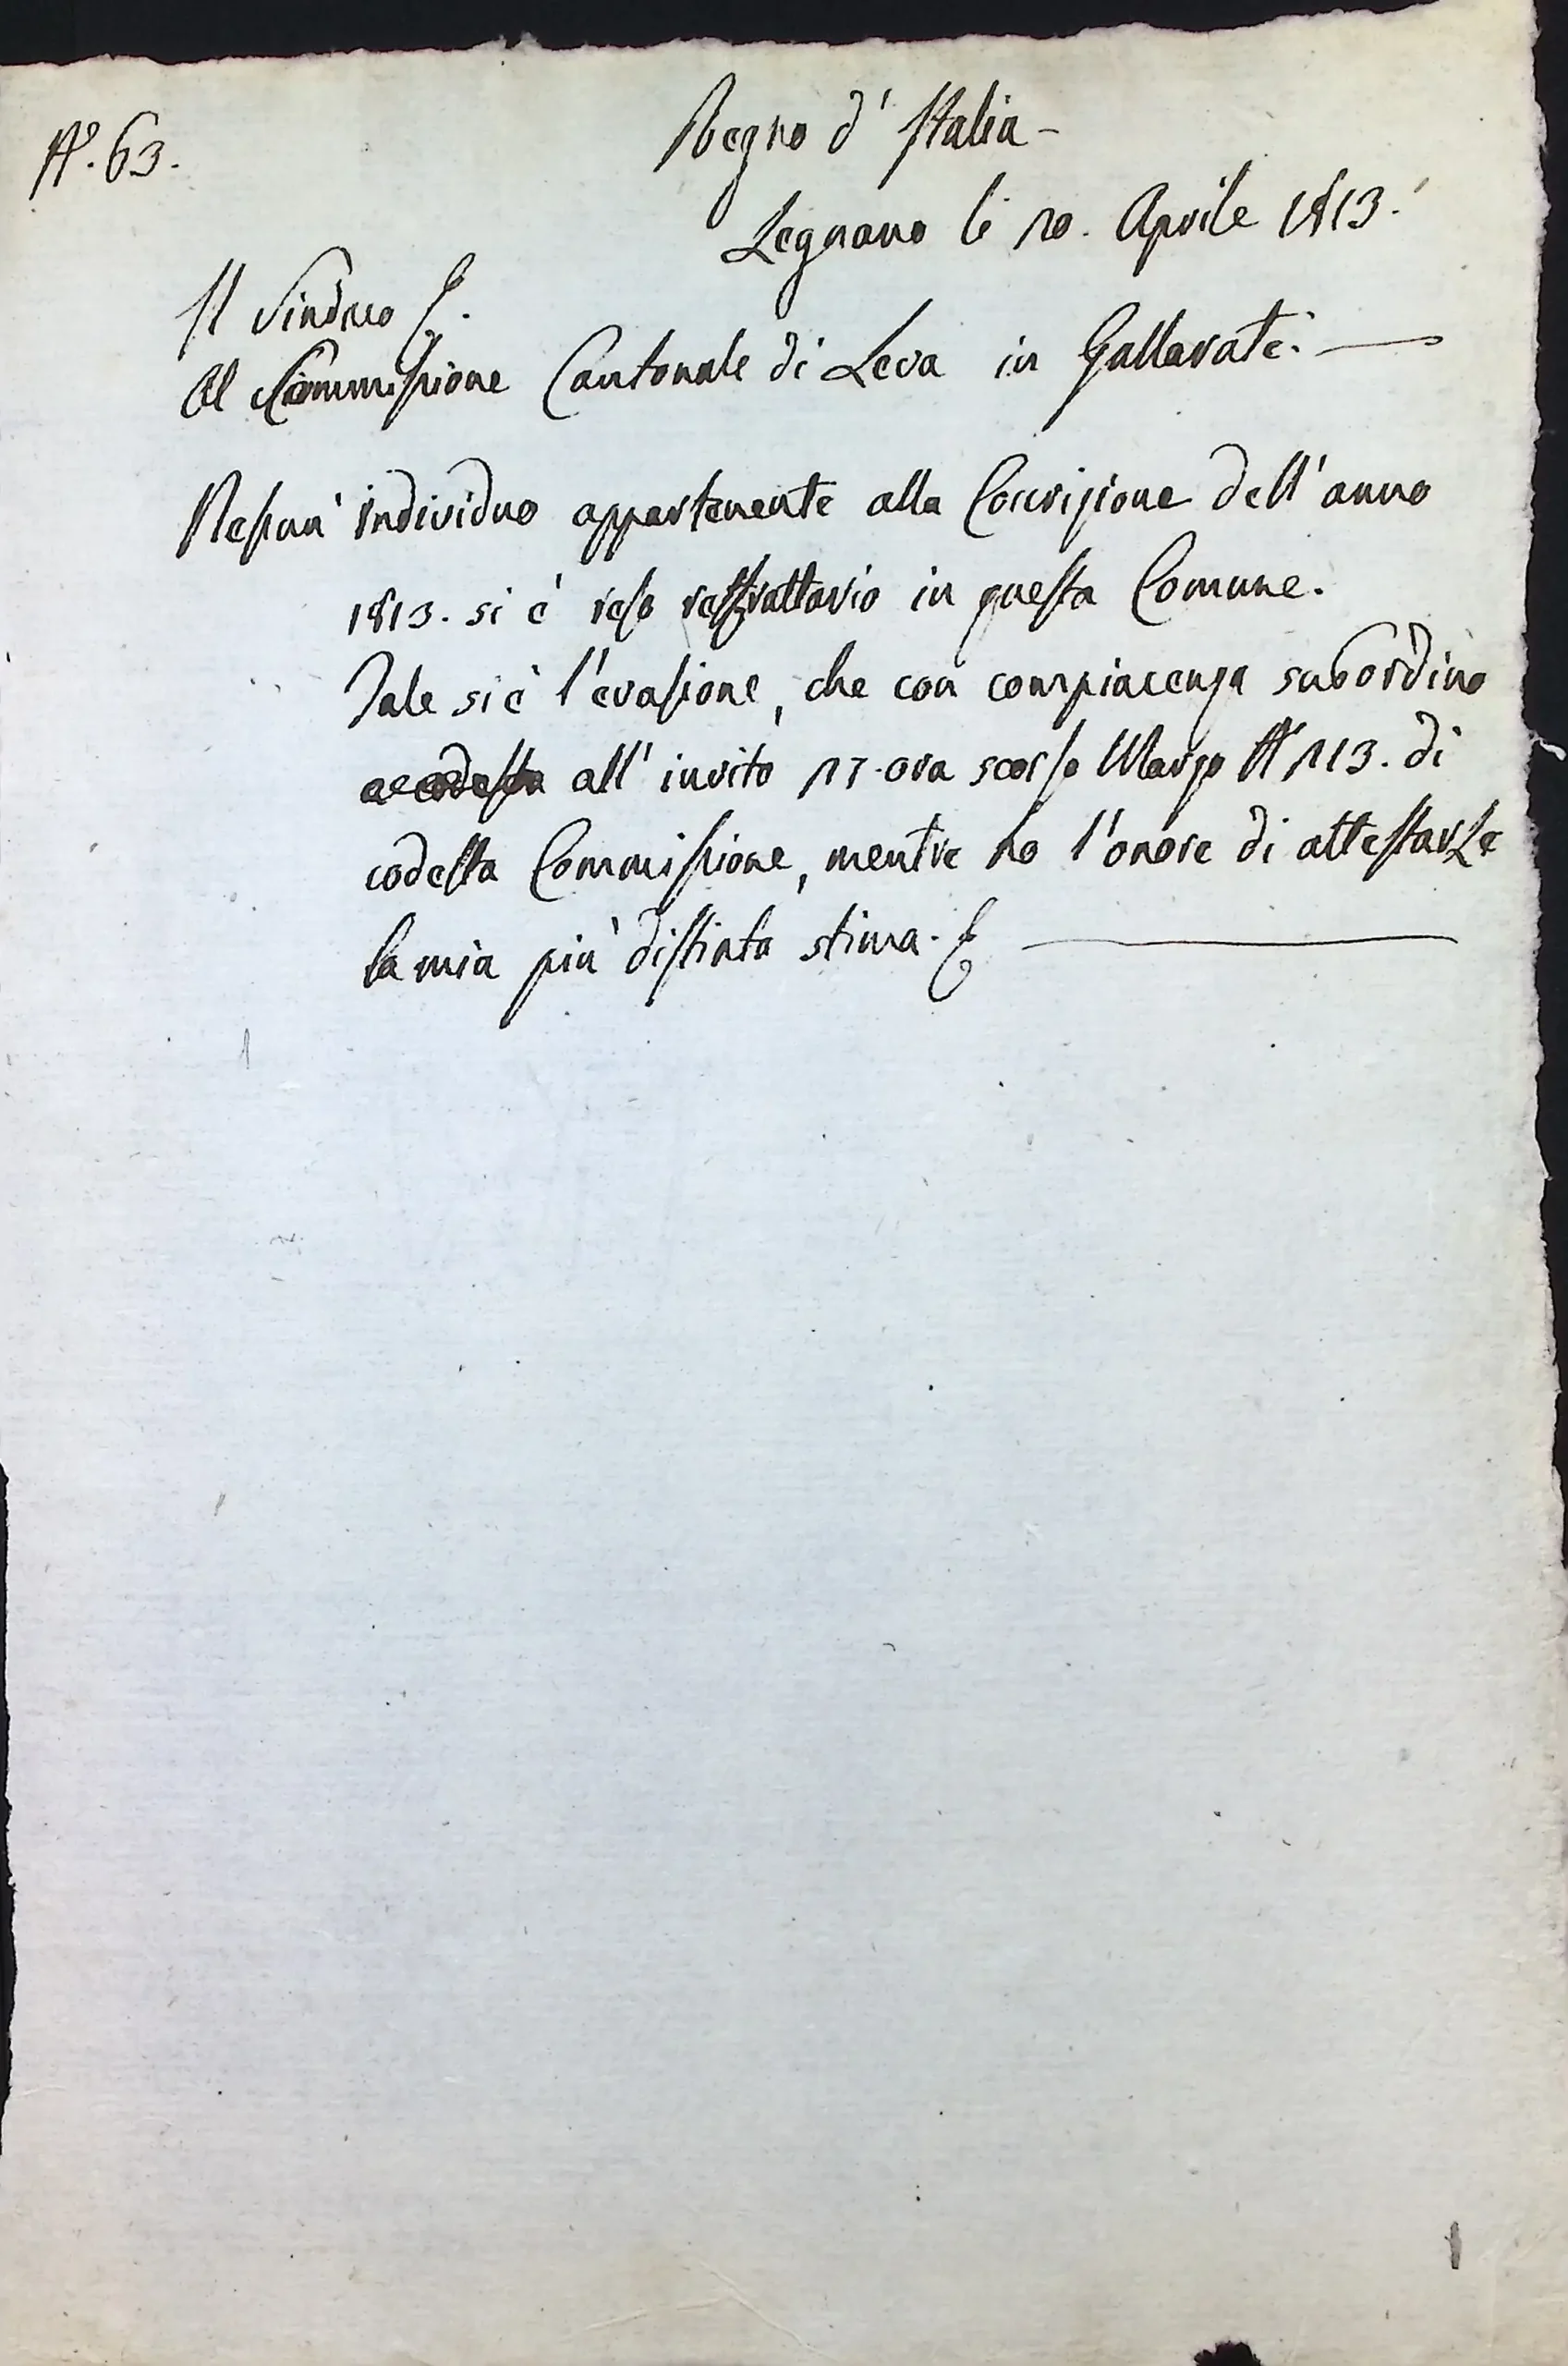 N.° 63.
Regno d' Italia -
Legnano li 10. Aprile 1813.
Il Sindaco
Al Commissione Cantonale di Leva in Gallarate.
Nessun' individuo appartenente alla Coscrizione dell' anno
1813. si è reso reffrattario in questa Comune.
Tale si è l'evasione, che con compiacenza subordino
all' invito 17. ora scorso Marzo N 113. di
codesta Commissione, mentre ho l'onore di attestarLe
la mia più distinta stima.